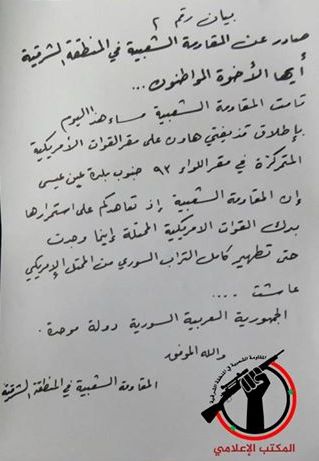 بيان رقم ٢
صادر عن المقاومة الشعبية في المنطقة الشرقية
أيها الأخوة المواطنون...
قامت المقاومة الشعبية مساء هذا اليوم
بإطلاق قذيفتي هاون على مقر القوات الأمريكية
المتمركزة في مقر اللواء ٩٣ جنوب بلدة عين عيسى
إن المقاومة الشعبية إذ تعاهدكم على استمرارها
بدك القوات الامريكية المحتلة إينما وجدت
حتى تطهير كامل التراب السوري من المحتل الإمريكي
عاشت ....
الجمهورية العربية السورية دولة موحدة.
والله الموفق
المقاومة الشعبية في المنطقة الشرقية
المقاومة الشعبية في المنطقة الشرقية
المكتب الإعلامي